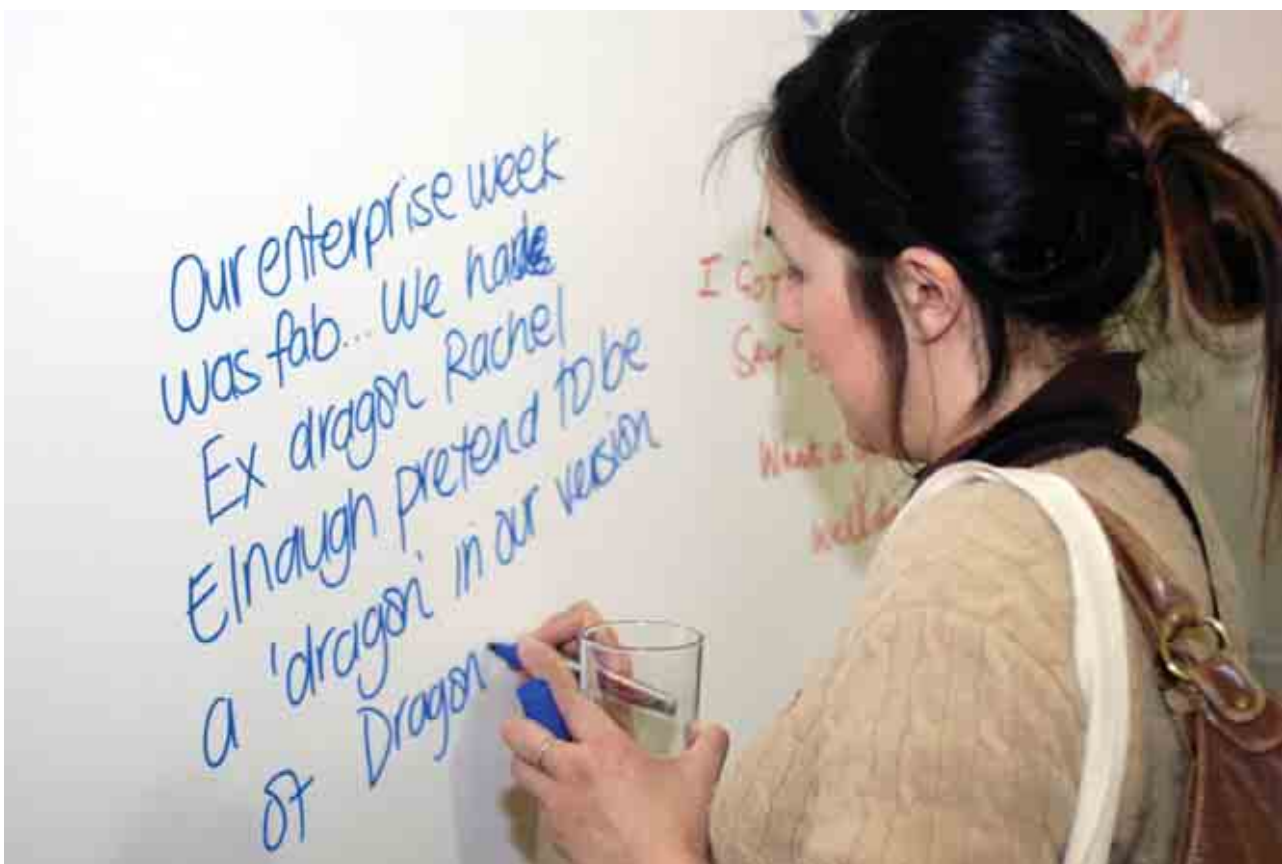 Our enterprise week
was fab... We had
Ex dragon Rachel
Elnaugh pretend to be
a 'dragon' in our version
of Dragon
I
Say
What a